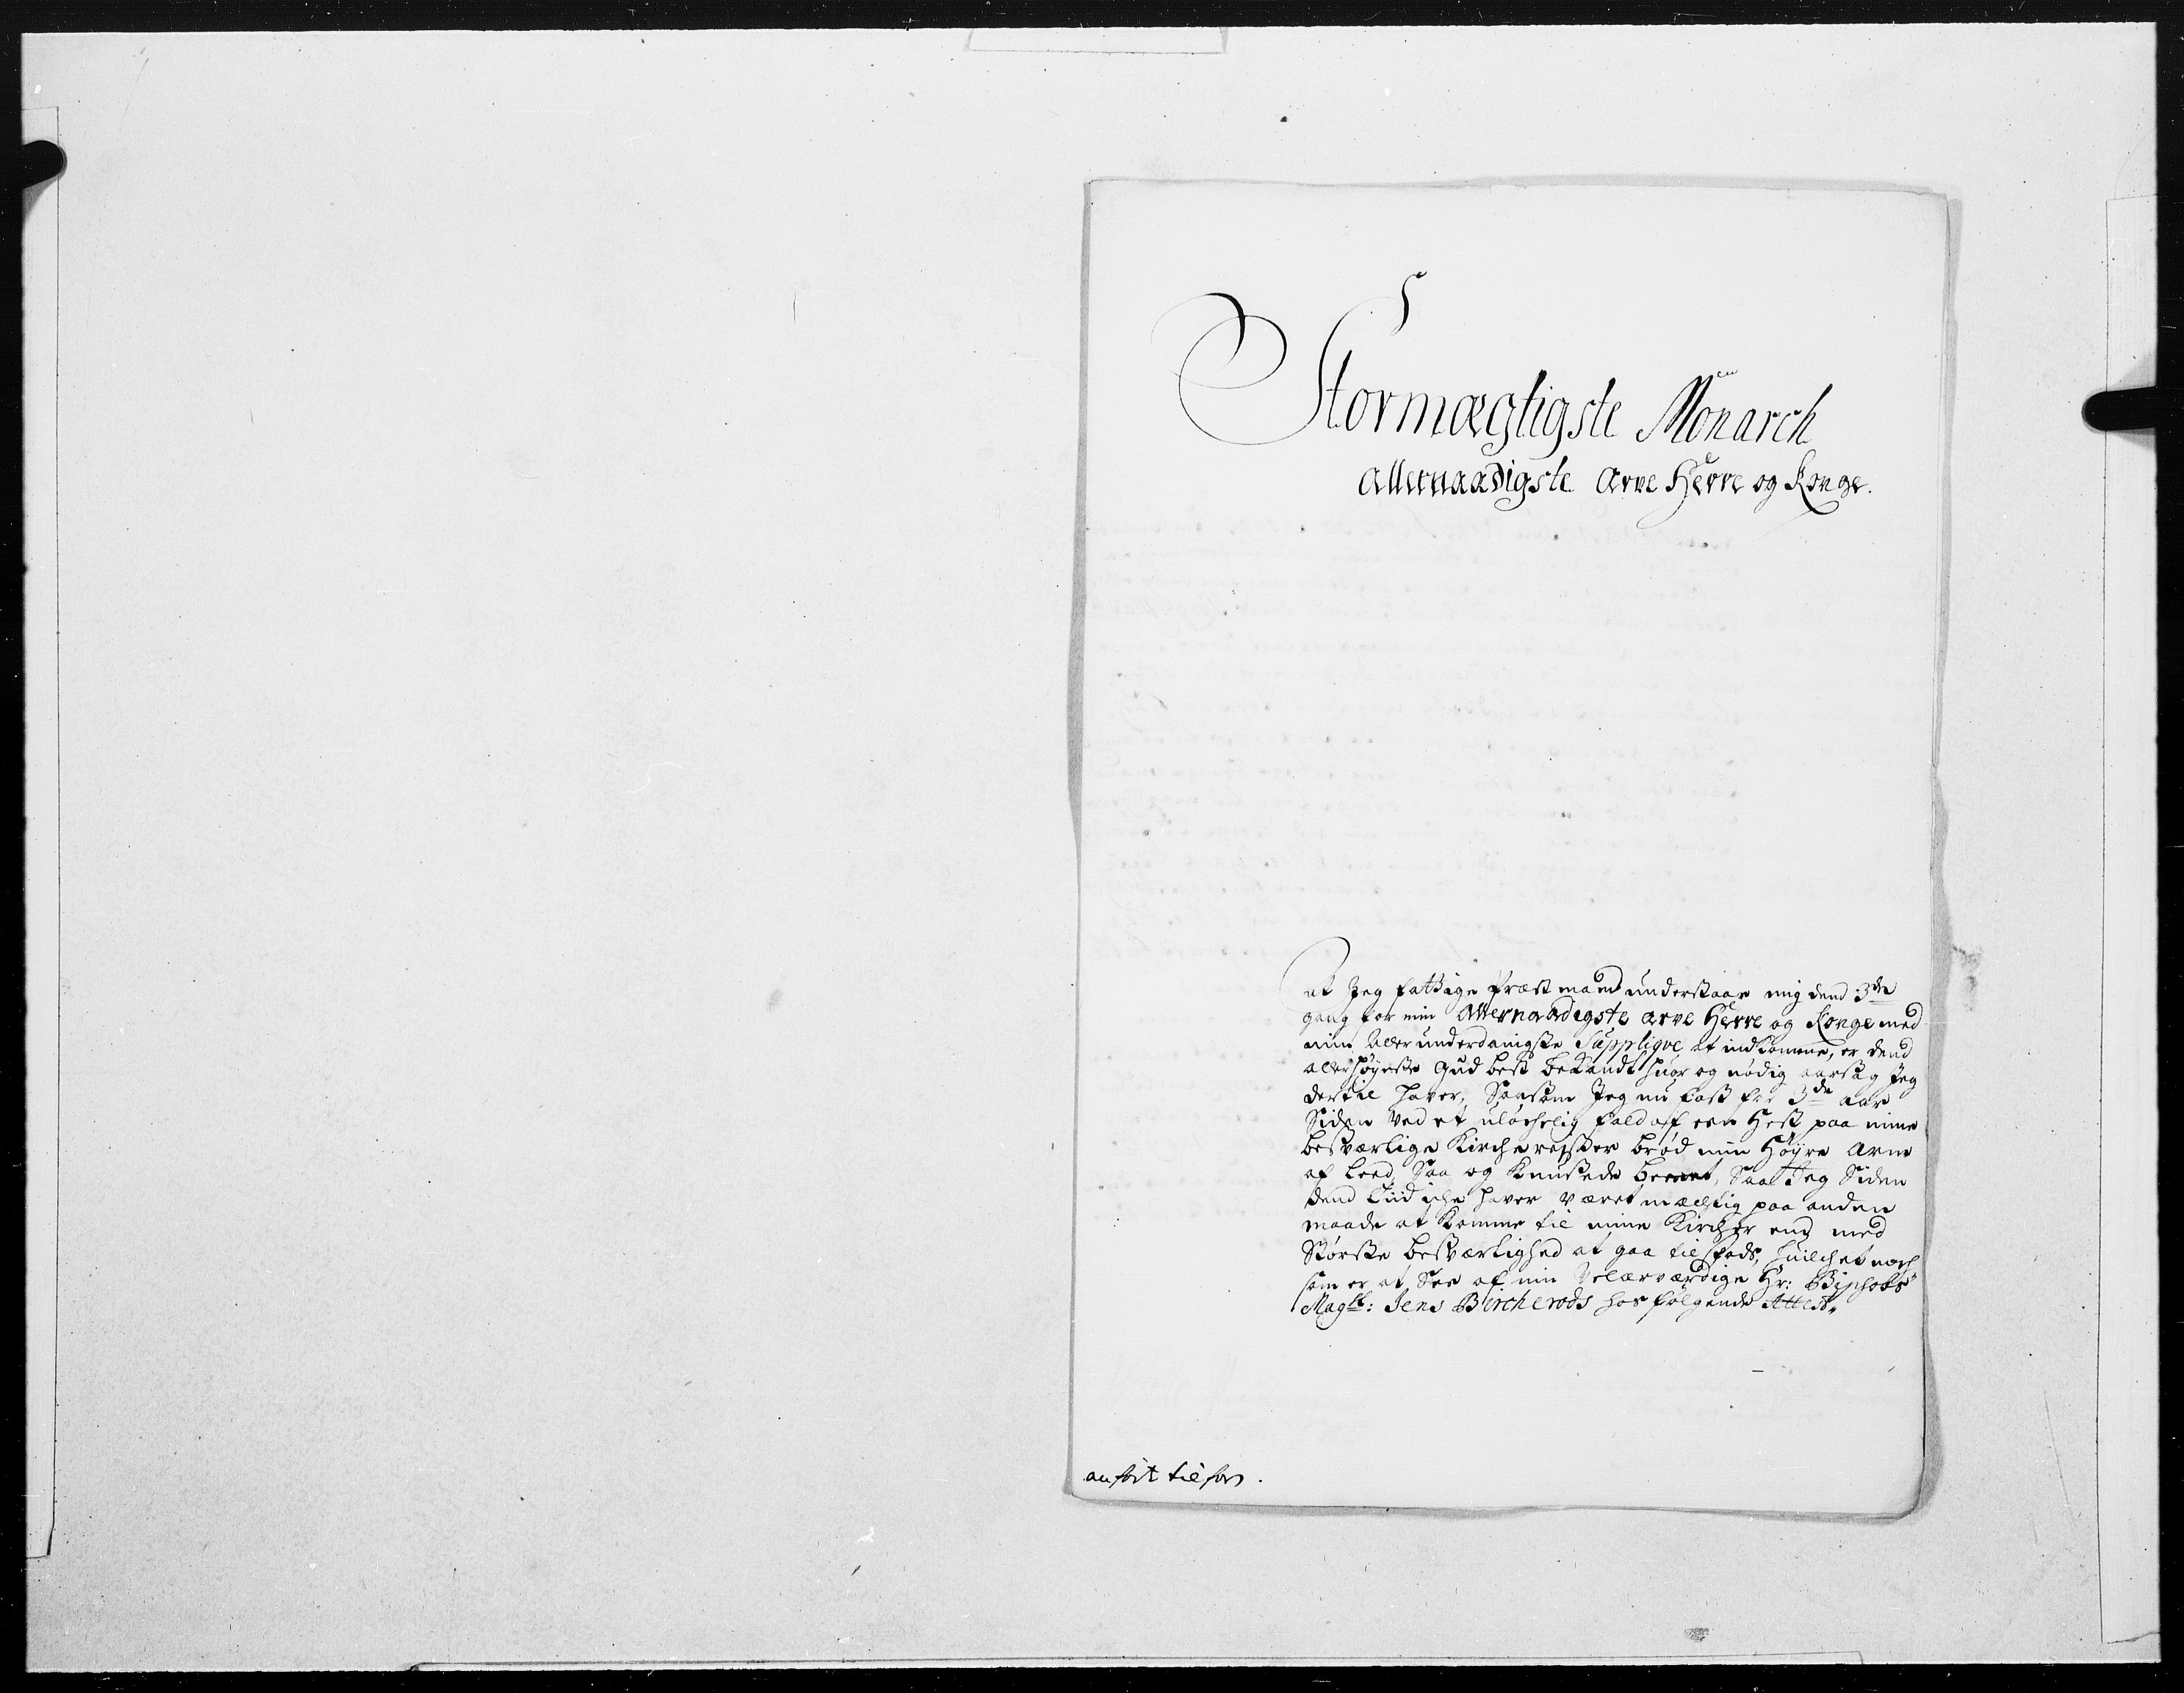 Stormægtigste Monarch
Allernaadigste Arve Herre og Konge.
at Jeg fattige Præstmand understaar mig dend 3de
gang for min Allernaadigste arve Herre og Konge med
min Aller underdanigste Supplique at indkomme, er dend
allerhøyeste Gud best bekandt huor og nødig aarsag Jeg
dertil haver, Saasom Jeg nu fast for 3de aar
Siden ved et uløchelig fald af een Hest paa mine
besværlige Kircherejser brød min Høyre Arm
af leed, Saa og knusede beenet, Saa Jeg Siden
dend Tiid iche haver været mæchtig paa anden
maade at komme til mine Kircher end med
Største besværlighed at gaa til fods, huilchet noch
som er at See af min Velærværdige Hr: Bischobs
Magst: Jens Bircherods hosfølgende Attest.
anført tilforn.